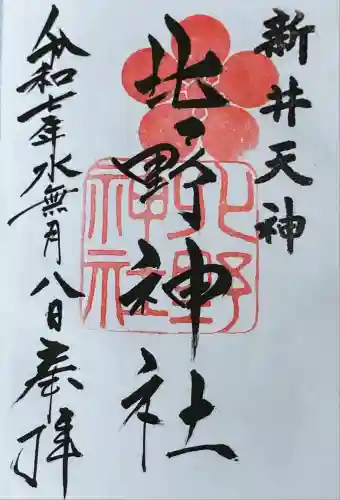 新井天神
北野神社
北野
神社
令和七年水無月八日奉拝